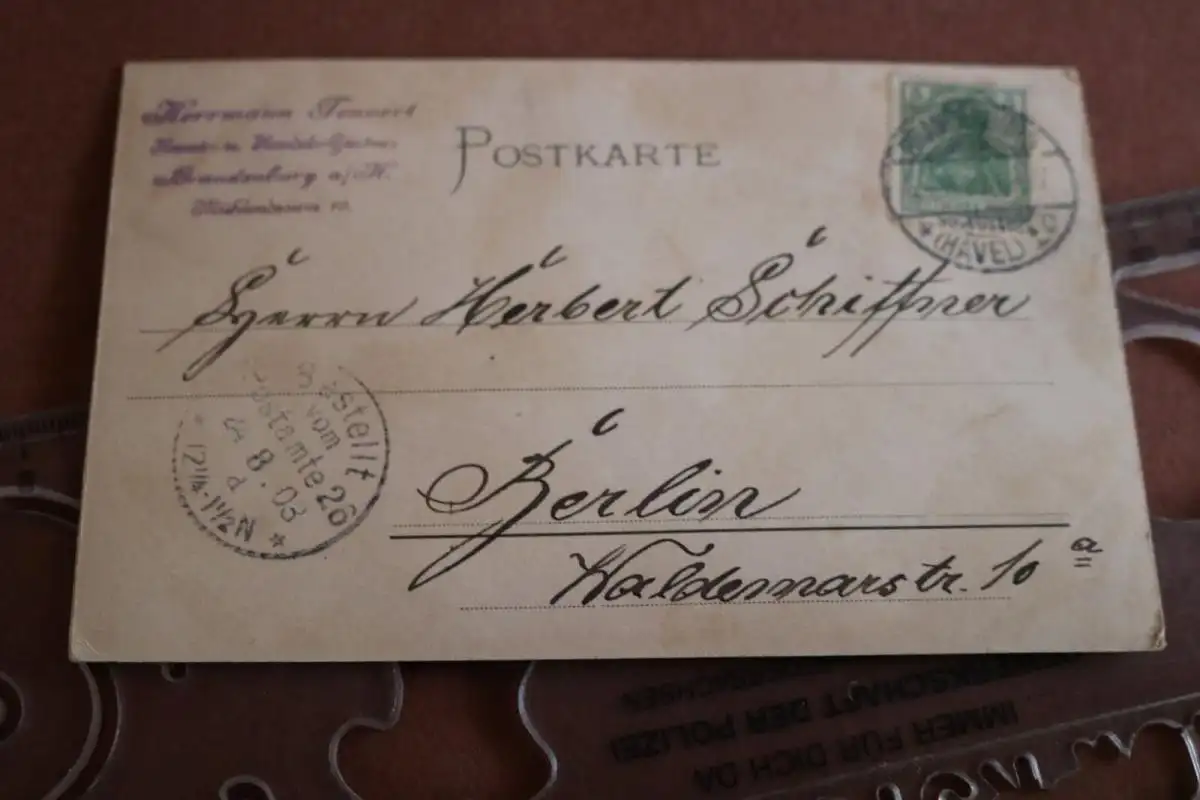 Herrmann
Kunst- u. Handels-Gärtner
Brandenburg a/H.
POSTKARTE
(HAVEL)
Herrn Herbert Schiffner
Bestellt
vom
Postamte 26
24 8. 03
12¼-1½N
Berlin
Waldemarstr. 10 a
IMMER FÜR DICH DA
DER POLIZEI